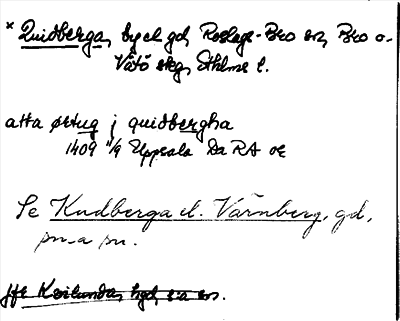 * Quidberga, by el. gd, Roslags-Bro sn, Bro o.
Vätö skg, Sthlms l.
atta ørtug j quidbergha
1409 11/9 Uppsala Da RA or
Se Kudberga el. Värnberg, gd,
sn.
jfr Kvilunda, hgd, s:a sn.